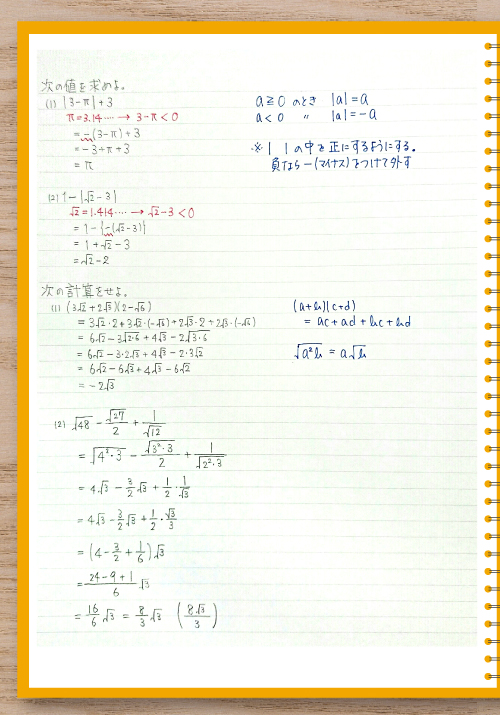 次の値を求めよ。
(1) |3-π|+3
π=3.14…→ 3-π<0
=-(3-π)+3
=-3+π+3
=π
a≧0 のとき |a|=a
a<0 〃 |a|=-a
※ | | の中を正にするようにする.
負なら -(マイナス)をつけて外す
(2) 1-|√2-3|
√2=1.414…→ √2-3<0
=1-{-(√2-3)}
=1+√2-3
=√2-2
次の計算をせよ。
(1) (3√2+2√3)(2-√6)
=3√2・2+3√2・(-√6)+2√3・2+2√3・(-√6)
=6√2-3√2・6+4√3-2√3・6
=6√2-3・2√3+4√3-2・3√2
=6√2-6√3+4√3-6√2
=-2√3
(a+b)(c+d)
=ac+ad+bc+bd
√a²b=a√b
(2) √48-√27/2+1/√12
=√4²・3-√3²・3/2+1/√2²・3
=4√3-3/2√3+1/2・1/√3
=4√3-3/2√3+1/2・√3/3
=(4-3/2+1/6)√3
=24-9+1/6√3
=16/6√3=8/3√3 (8√3/3)